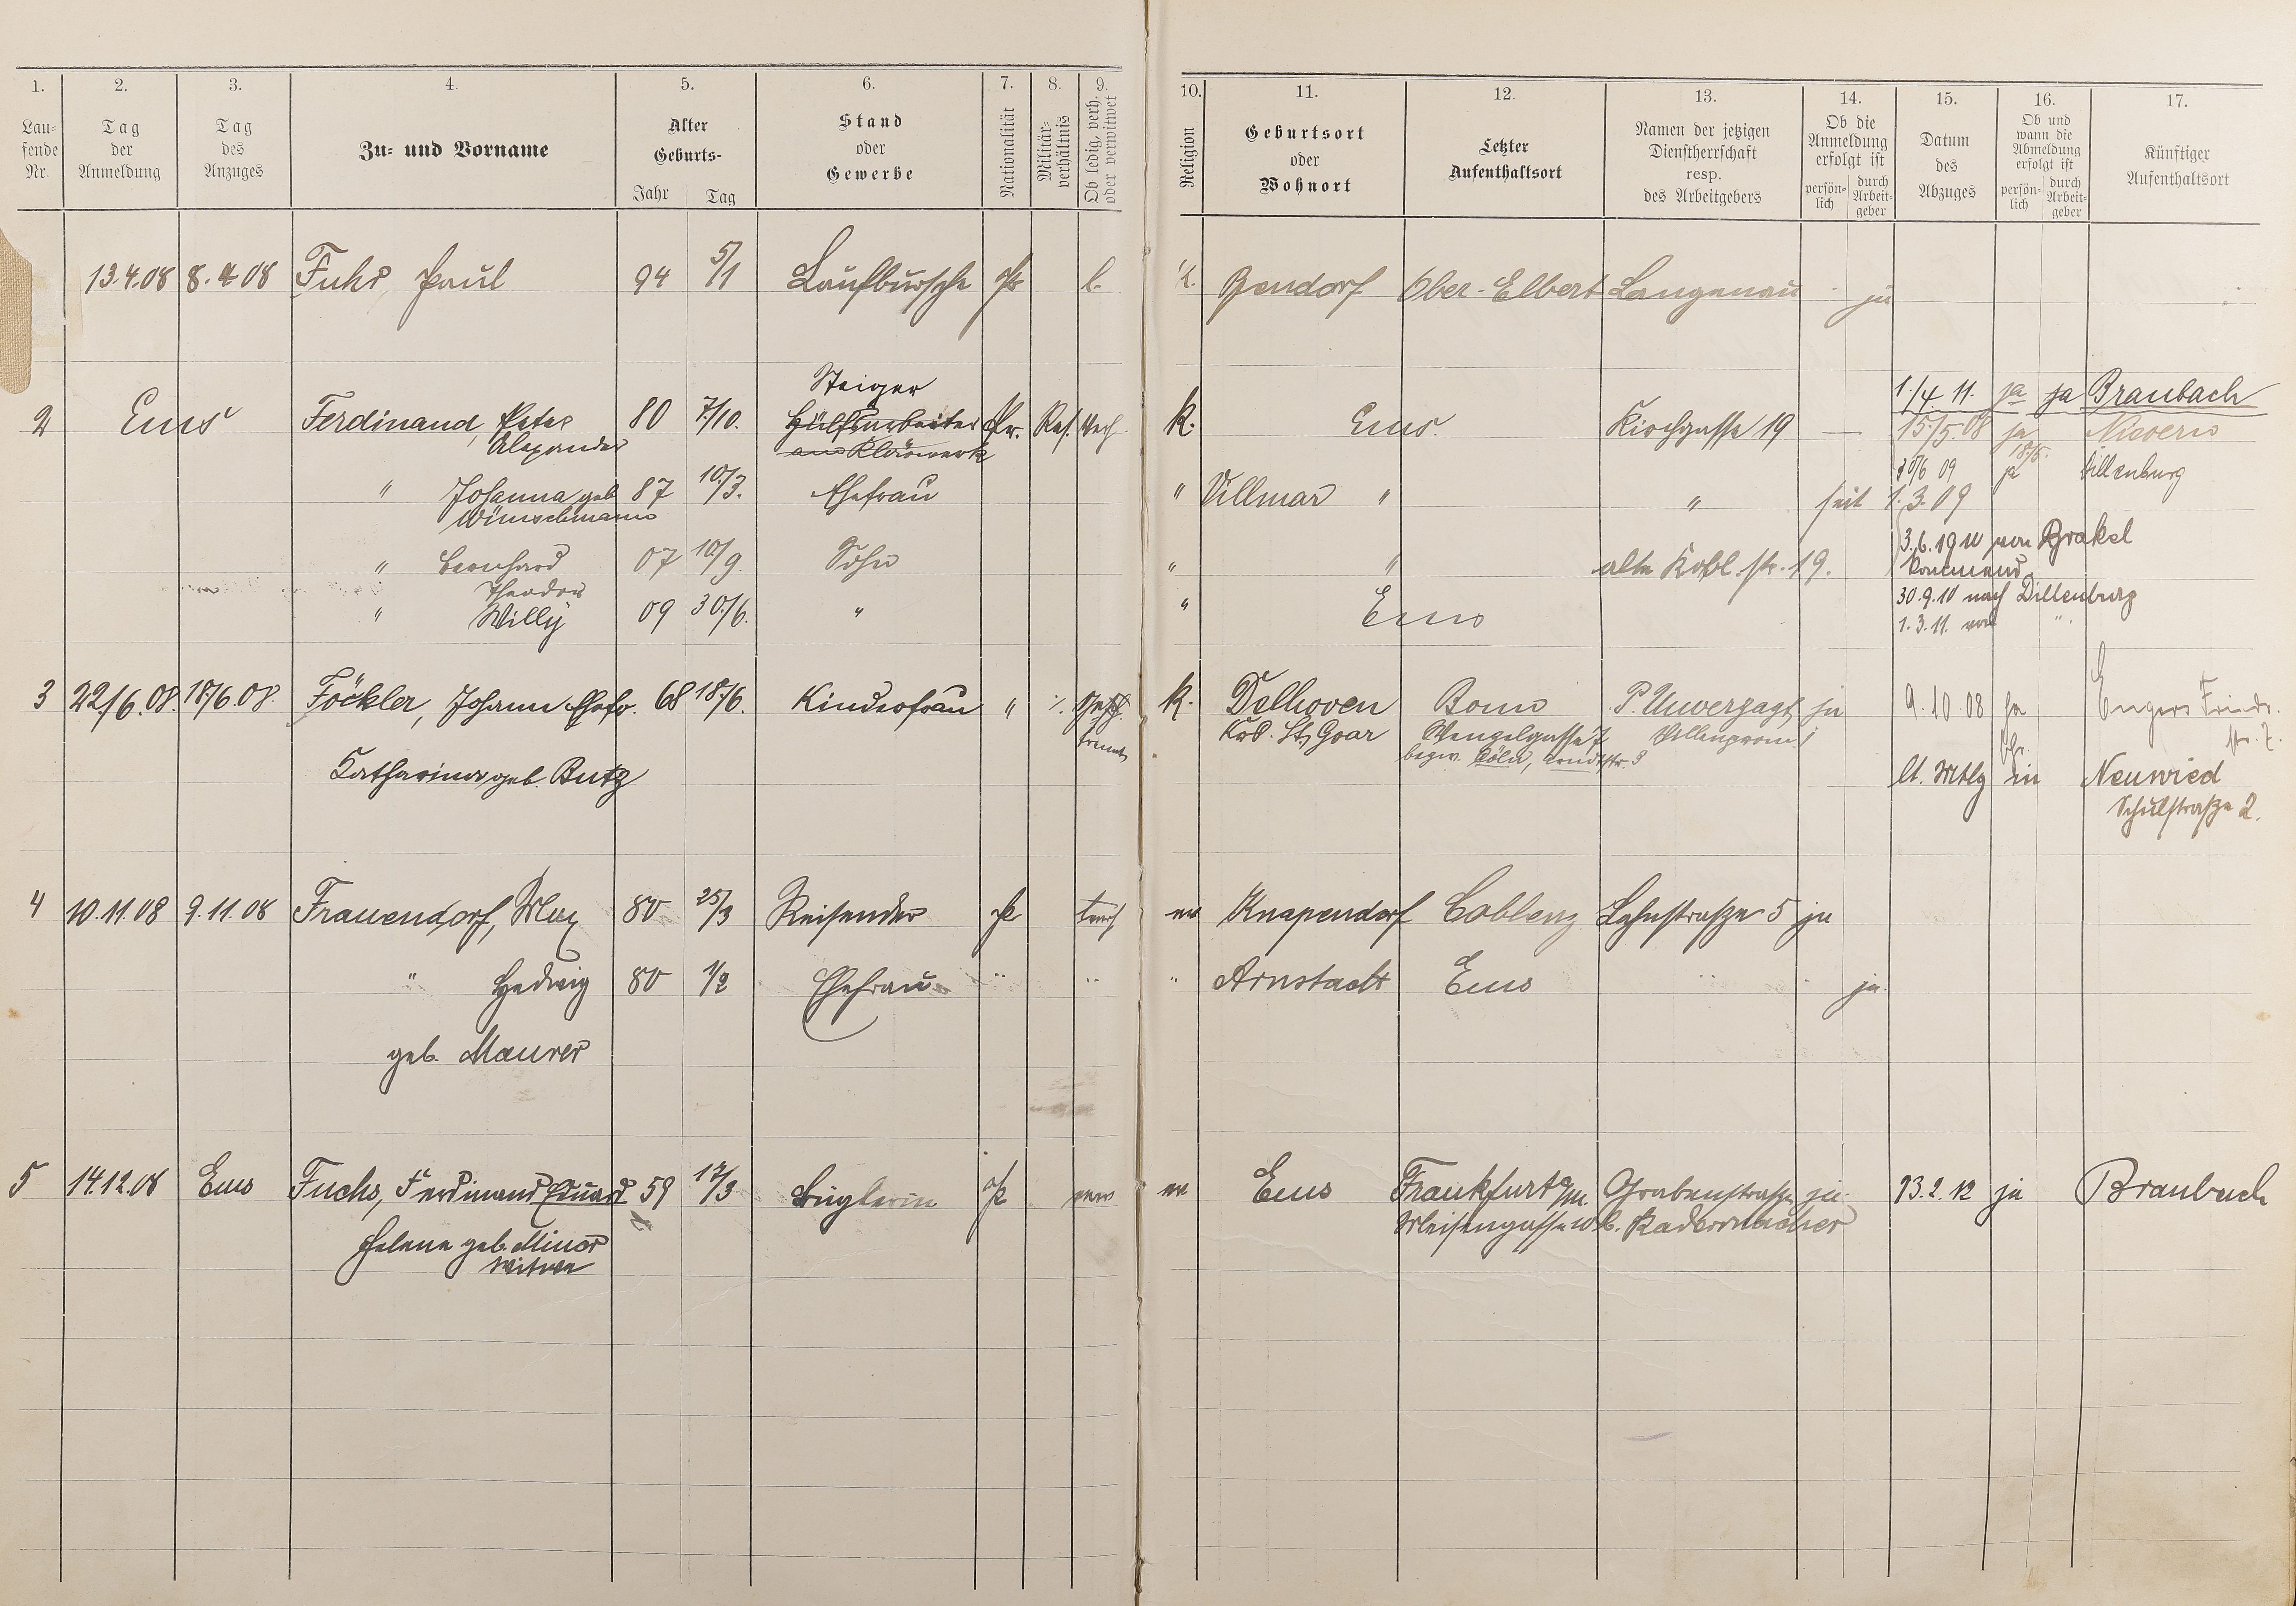 1. 2. 3. 4. 5. 6. 7. 8. 9. 10. 11. 12. 13. 14. 15. 16. 17.
Laufende Nr. Tag der Anmeldung Tag des Anzuges Zu- und Vorname Alter Geburts- Jahr Tag Stand oder Gewerbe Nationalität Militärverhältnis Ob ledig, verh. oder verwitwet Religion Geburtsort oder Wohnort Letzter Aufenthaltsort Namen der jetzigen Dienstherrschaft resp. des Arbeitgebers Ob die Anmeldung erfolgt ist persönlich durch Arbeitgeber Datum des Abzuges Ob und wann die Abmeldung erfolgt ist persönlich durch Arbeitgeber Künftiger Aufenthaltsort
13.4.08 8.4.08 Fuhs Paul 94 5/1 Laufbursche Pr l. Bendorf Ober-Elbert Langenau ja
Steiger 1./4 11. ja ja Braubach
2 Ems Ferdinand, Peter 80 7./10. Hülfsarbeiter Pr. Res. Verh. K. Ems. Kirchgasse 19 — 15./5.08 ja Nievern
Alexander am Klärwerk 18./5.
30/6 09 ja Dillenburg
" Johanna geb 87 10./3. Ehefrau " Villmar " " seit 1.3.09
Wünschmann
3.6.1910 von Brakel
" Bernhard 07 10/9. Sohn " " alte Kobl. str. 19. kommend
Theodor 30.9.10 nach Dillenburg
" Willy 09 30./6. " " Ems 1.3.11. von "
3 22/6.08. 18/6.08. Föckler, Johann Ehefr. 68 18./6. Kinderfrau " ./. K. Delhoven Bonn P. Unverzagt ja 9.10.08 ja Engers Friedr.
Krs. St. Goar Wenzelgasse 7 Villenprom. 1 str. 7.
bezw. Cöln,
Catharina geb. Butz lt. Mtlg in Neuwied
Schulstraße 2.
4 10.11.08 9.11.08 Frauendorf, Max 80 25/3 Reisender Pr verh ev Knapendorf Coblenz Lahnstraße 5 ja
" Hedwig 80 1/2 Ehefrau " " " Arnstadt Ems " ja.
geb. Maurer
5 14.12.08 Ems Fuchs, Ferdinand Eduard 59 17/3 Büglerin Pr verw ev Ems Frankfurt a/m. Grabenstraße ja. 13.2.12 ja Braubach
Meisengasse 10 b. Radermacher
Helene geb. Minor
Witwe